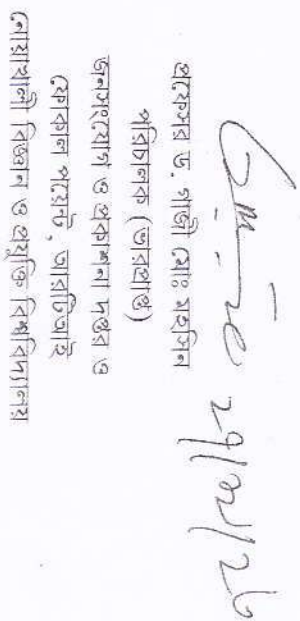 ২৭/১২/২৬
প্রফেসর ড. গাজী মোঃ মহসিন
পরিচালক (ভারপ্রাপ্ত)
জনসংযোগ ও প্রকাশনা দপ্তর ও
ফোকাল পয়েন্ট, আরটিআই
নোয়াখালী বিজ্ঞান ও প্রযুক্তি বিশ্ববিদ্যালয়